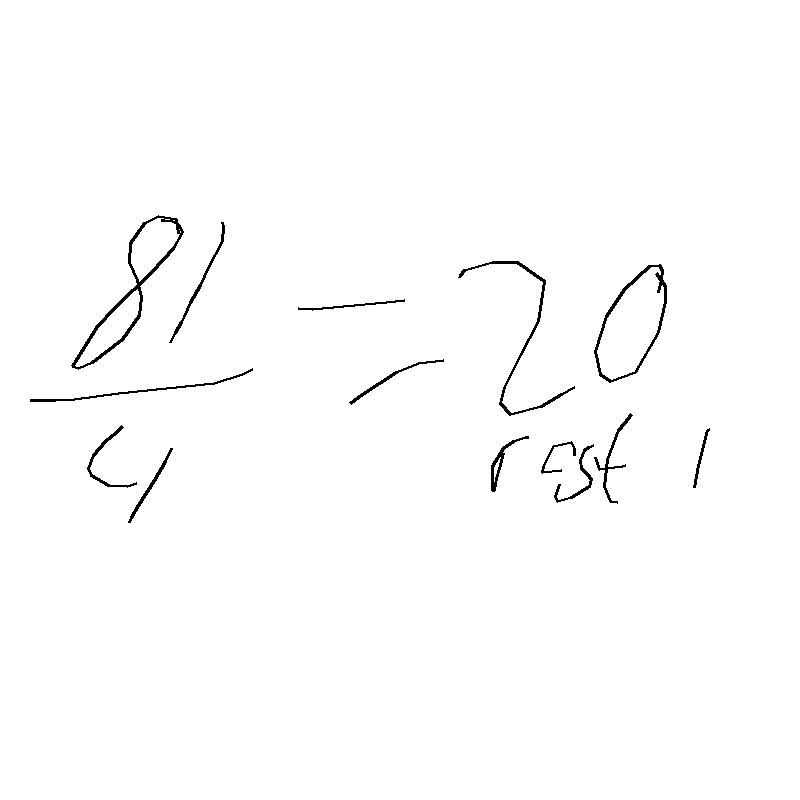 81/4 = 20
rest 1